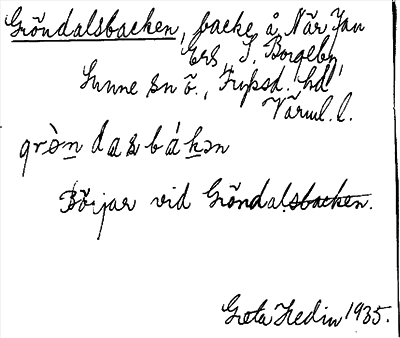 Gröndalsbacken, backe å När Jan
Ers, S. Borgeby,
Sunne sn ö., Fryksd. hd
Värml. l.
grò̱n das bákən
Börjar vid Gröndalsbacken.
Greta Hedin 1935.